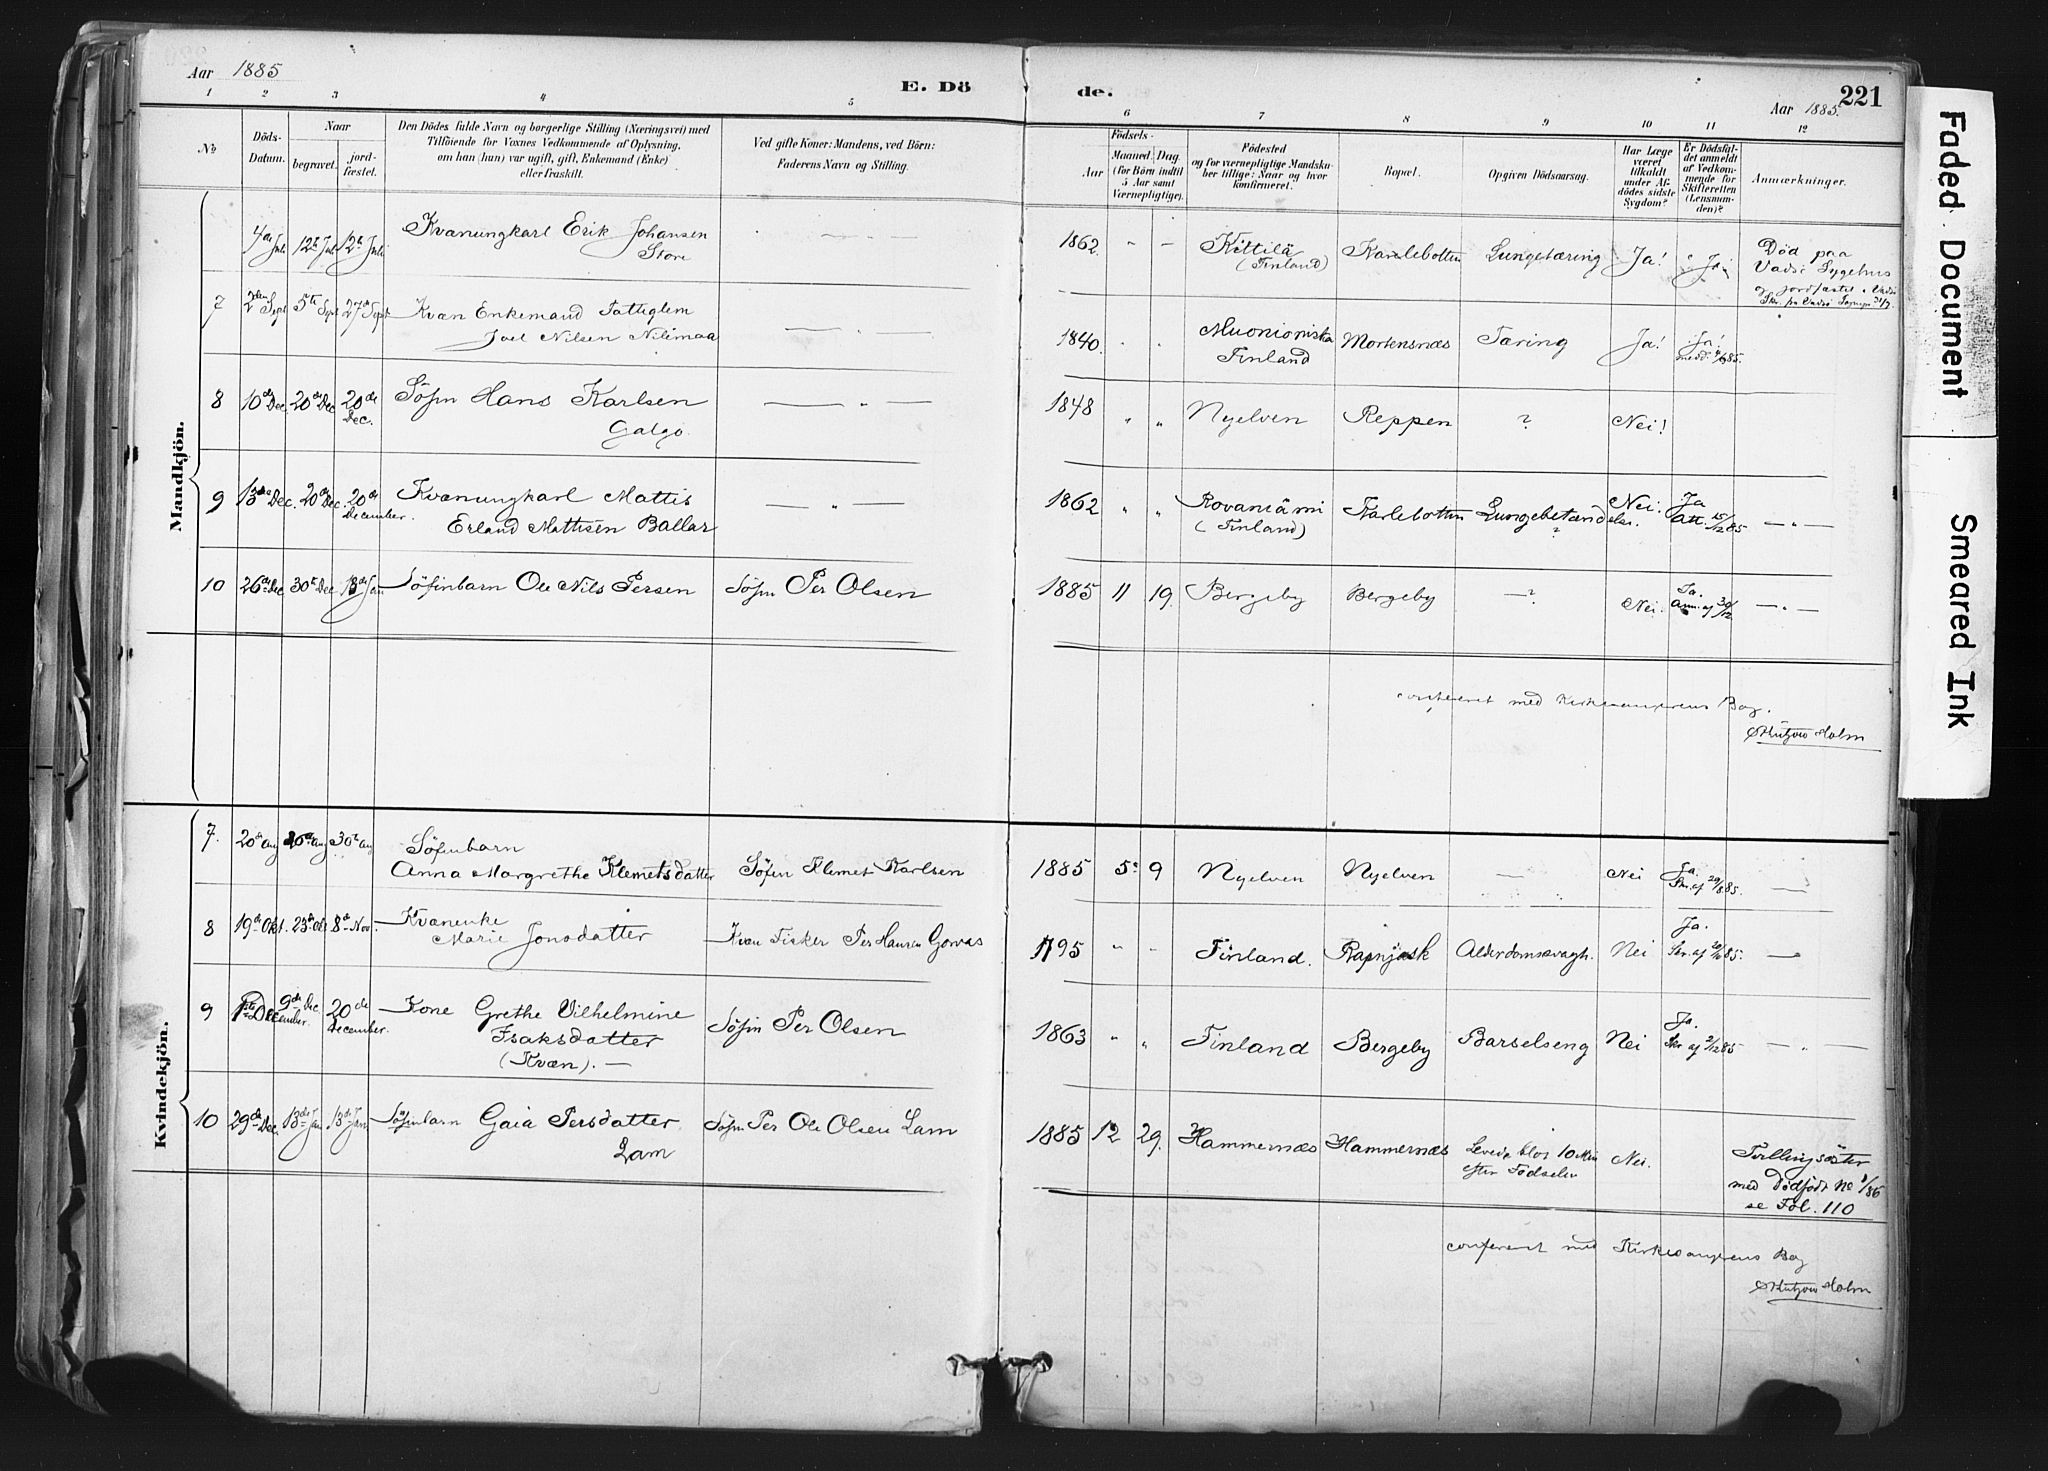 Aar 1885
E. Döde.
Aar 1885.
221
1 2 3 4 5 6 7 8 9 10 11 12
No
Döds-
Datum.
Naar
begravet.
jord-
fæstet.
Den Dödes fulde Navn og borgerlige Stilling (Næringsvei) med
Tilföiende for Voxnes Vedkommende af Oplysning,
om han (hun) var ugift, gift, Enkemand (Enke)
eller fraskilt.
Ved gifte Koner: Mandens, ved Börn:
Faderens Navn og Stilling.
Födsels-
Aar
Maaned. Dag.
(for Börn indtil
5 Aar samt
Værnepligtige).
Födested
og for værnepligtige Mandsku-
ber tillige: Naar og hvor
konfirmeret.
Bopæl.
Opgiven Dödsaarsag.
Har Læge
været
tilkaldt
under Af-
dödes sidste
Sygdom?
Er Dödsfal-
det anmeldt
af Vedkom-
mende for
Skifteretten
(Lensman-
den)?
Anmærkninger.
Mandkjön.
4de Juli 12te Juli 12te Juli Kvænungkarl Erik Johansen
Store
1862. " - Kittilä
(Finland)
Karlebotten Lungetæring Ja! Ja
Död paa
Vadsö Sygehus
og jordfæstet i Vadsö
7 2den Sept 5te Sept 27de Sept Kvæn Enkemand Fattiglem
Joel Nilsen Nilimaa — " —
1840. " " Muonioniska
Finland
Mortensnæs Tæring Ja! Ja!
8 10de Dec. 20de Dec 20de
Dec.
Söfin Hans Karlsen
Galgo.
— " —
1848 " " Nyelven Reppen ? Nei!
9 13de Dec. 20de Dec. 20de
December.
Kvænungkarl Mattis
Erland Mattisen Ballar
— " —
1862 " " Rovaniämi
(Finland)
Karlebotten Lungebetændelse.
?
Nei. Ja
Att. 15/12 85 — " —
10 26de Dec 30te Dec 13de Jan Söfinbarn Ole Nils Persen Söfin Per Olsen
1885 11 19. Bergeby Bergeby —? Nei. Ja.
Anm. af 30/12 — " —
confereret med Kirkesangerens Bog.
Holm
Kvindekjön.
7. 20de Aug 26de Aug 30te Aug Söfinbarn
Anna Margrethe Klemetsdatter Söfin Klemet Karlsen
1885 5. 9 Nyelven Nyelven — Nei Ja.
Skr. af 29/8 85. —
8 19de Okt. 25de Okt 8de Nov. Kvænenke
Marie Jonsdatter Kvæn Fisker Per Hansen Gorvas
1795 " - Finland. Alderdomssvagh. Nei Ja.
Skr. af 20/10 85. —
9 1ste Dec 9de Dec
ember.
20de
December.
Kone Grethe Vilhelmine
Isaksdatter
(Kvæn). —
Söfin Per Olsen
1863 " " Finland Bergeby Barselseng Nei Ja.
Skr. af 2/12 85 — " —
10 29de Dec. 13de Jan 13de Jan Söfinbarn Gaia Persdatter
Lam
Söfin Per Ole Olsen Lam
1885 12 29. Hammernæs Hammernæs Levede blot 10 Min
efter Födselen
Nei.
Tvillingsöster
med Dödfödt No 1/86
se Fol. 110
confereret med Kirkesangerens Bog
Holm
Faded Document
Smeared Ink